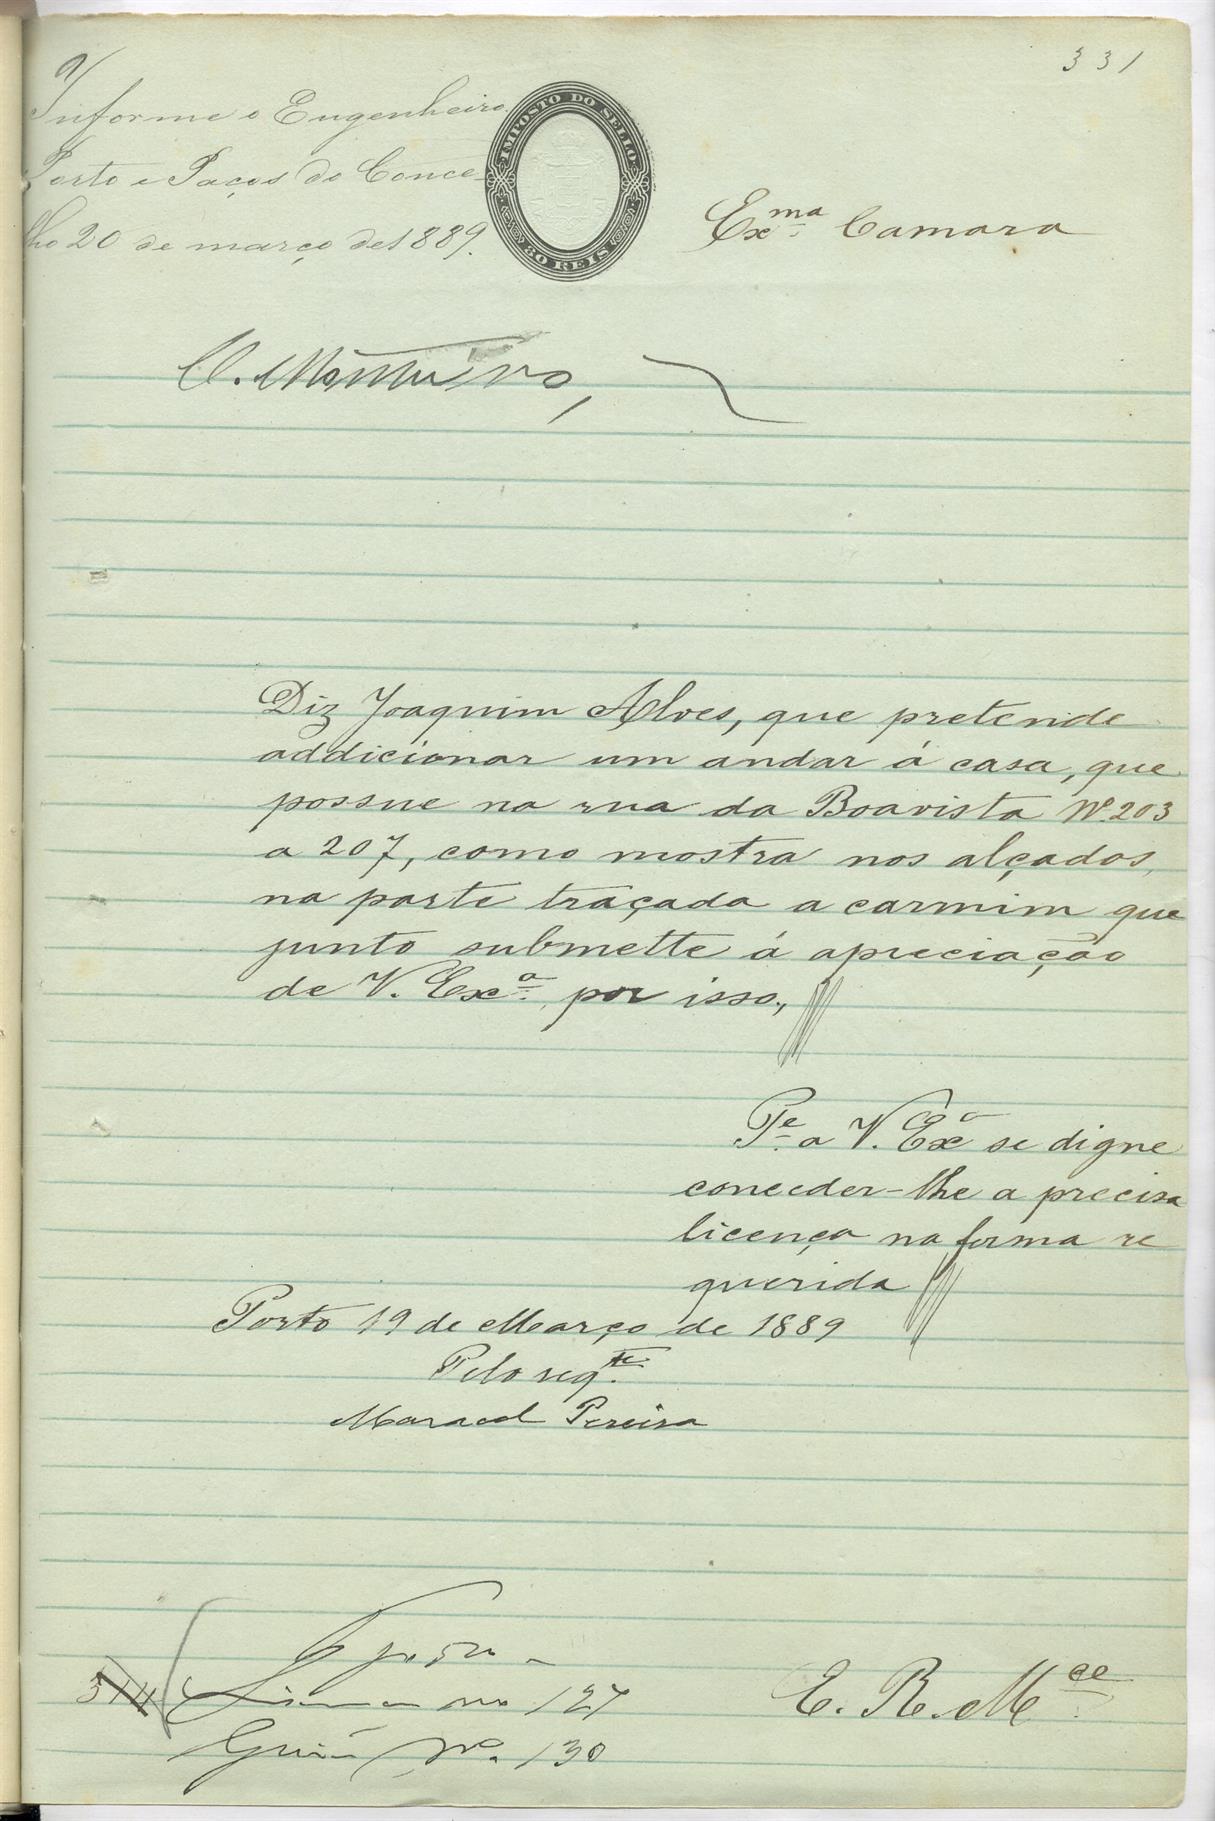 331
Informe o Engenheiro.
Porto e Paços do Conce-
lho 20 de março de 1889.
IMPOSTO DO SELLO
80 REIS
Ex.ma Camara
Diz Joaquim Alves, que pretende
addicionar um andar á casa, que
possue na rua da Boavista Nº 203
a 207, como mostra nos alçados,
na parte traçada a carmim que
junto submette á apreciação
de V. Exc.a por isso,
P.e a V. Ex.a se digne
conceder-lhe a precisa
licença na forma re
querida
Porto 19 de Março de 1889
Pelo req.te
Manoel Pereira
314
127
Guia Nº. 130
E. R. M.ce